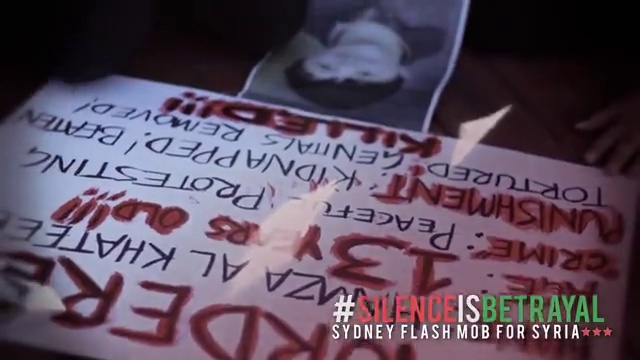 RDERE
MZA AL KHATEE
AGE: 13 YEARS OLD!!!
"CRIME": PEACEFUL PROTESTING
PUNISHMENT: KIDNAPPED! BEATEN
TORTURED! GENITALS REMOVED!
KILLED!!!
#SILENCEISBETRAYAL
SYDNEY FLASH MOB FOR SYRIA